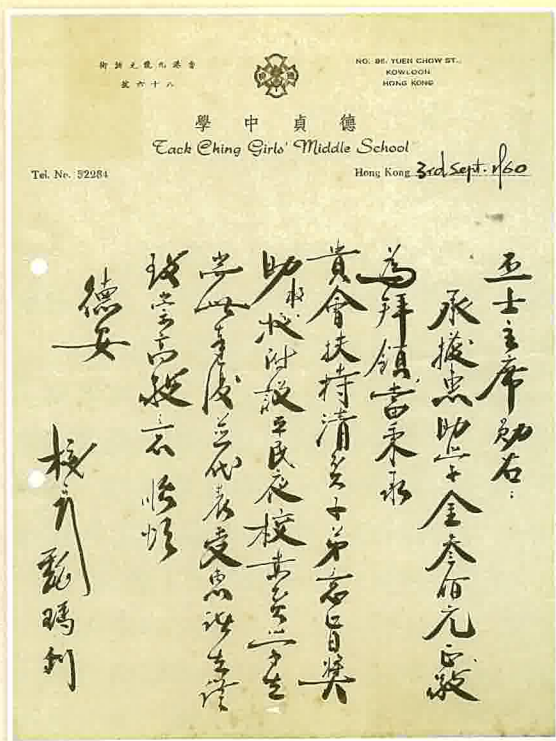 香港九龍元洲街
八十六號
NO. 86, YUEN CHOW ST.,
KOWLOON
HONG KONG
德貞中學
Tack Ching Girls' Middle School
Tel. No. 52284
Hong Kong 3rd Sept. 1960
士主席勛右：
承撥惠助學金叁佰元正敬
為拜領當秉承
貴會扶持清貧子弟旨獎
助敝校附設平民夜校貧學生
耑此奉復並代表受惠諸生謹
致崇高敬意 順頌
德安
校長 瑪利